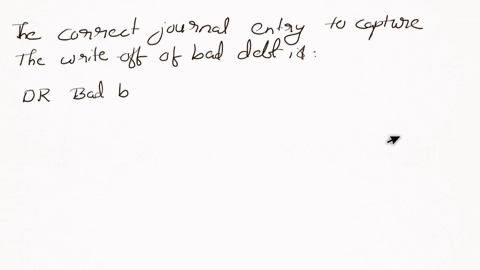 The correct journal entry to capture
The write off of bad debt is:
DR Bad b